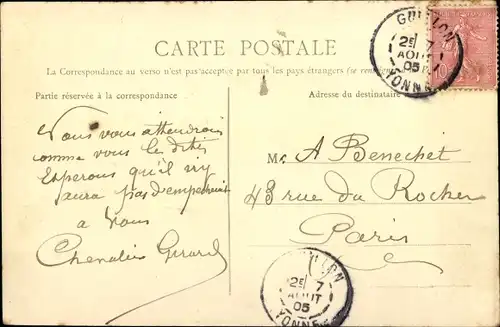 CARTE POSTALE
La Correspondance au verso n'est pas acceptée par tous les pays étrangers (se renseigner
Partie réservée à la correspondance
Adresse du destinataire
GUILLON
2E 7
AOUT
05
YONNE
10
Vous vous attendrons
comme vous le dites
Esperons qu'il n'y
aura pas d'empechement
a Vous
Chevalier Gerard
Mr A Benechet
43 rue du Rocher
Paris
GUILLON
2E 7
AOUT
05
YONNE